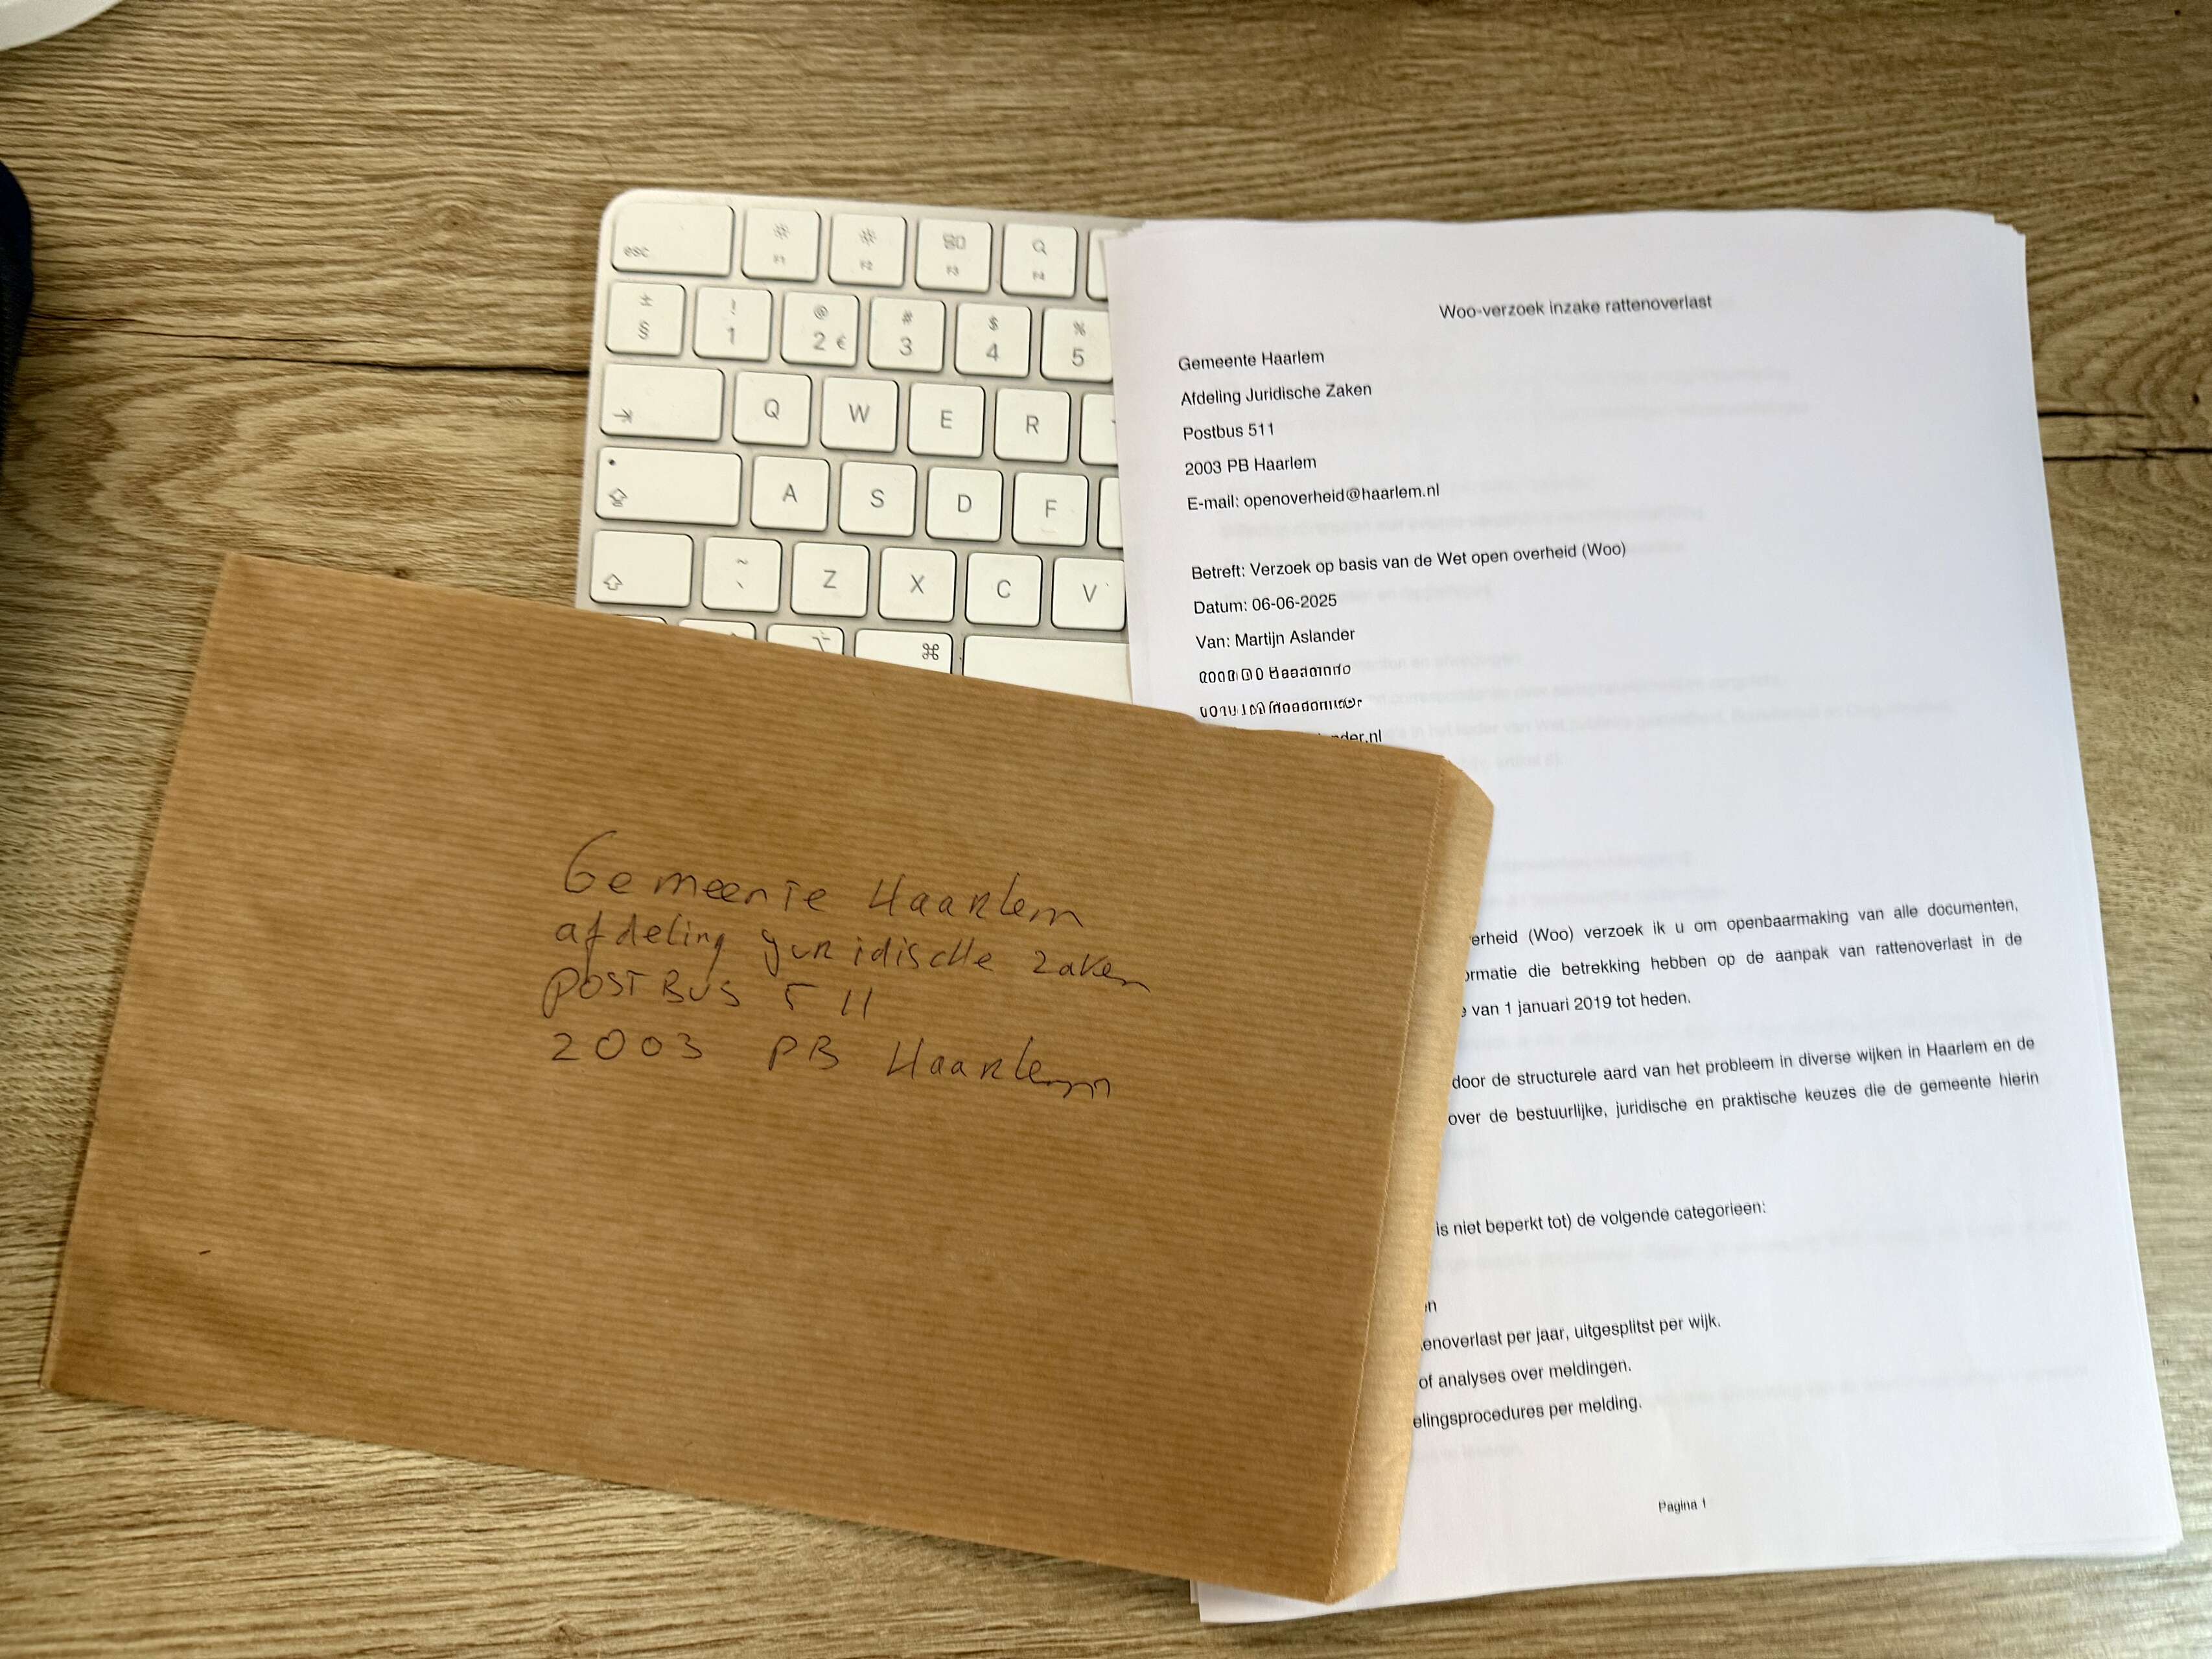 esc
F1
F2
F3
F4
±
§
!
1
@
2 €
#
3
$
4
%
5
Q
W
E
R
A
S
D
F
~
`
Z
X
C
V
⌥
⌘
Woo-verzoek inzake rattenoverlast
Gemeente Haarlem
Afdeling Juridische Zaken
Postbus 511
2003 PB Haarlem
E-mail: openoverheid@haarlem.nl
Betreft: Verzoek op basis van de Wet open overheid (Woo)
Datum: 06-06-2025
Van: Martijn Aslander
nder.nl
erheid (Woo) verzoek ik u om openbaarmaking van alle documenten,
ormatie die betrekking hebben op de aanpak van rattenoverlast in de
van 1 januari 2019 tot heden.
door de structurele aard van het probleem in diverse wijken in Haarlem en de
over de bestuurlijke, juridische en praktische keuzes die de gemeente hierin
is niet beperkt tot) de volgende categorieen:
en
enoverlast per jaar, uitgesplitst per wijk.
of analyses over meldingen.
elingsprocedures per melding.
Pagina 1
Gemeente Haarlem
afdeling juridische zaken
POSTBUS 511
2003 PB Haarlem